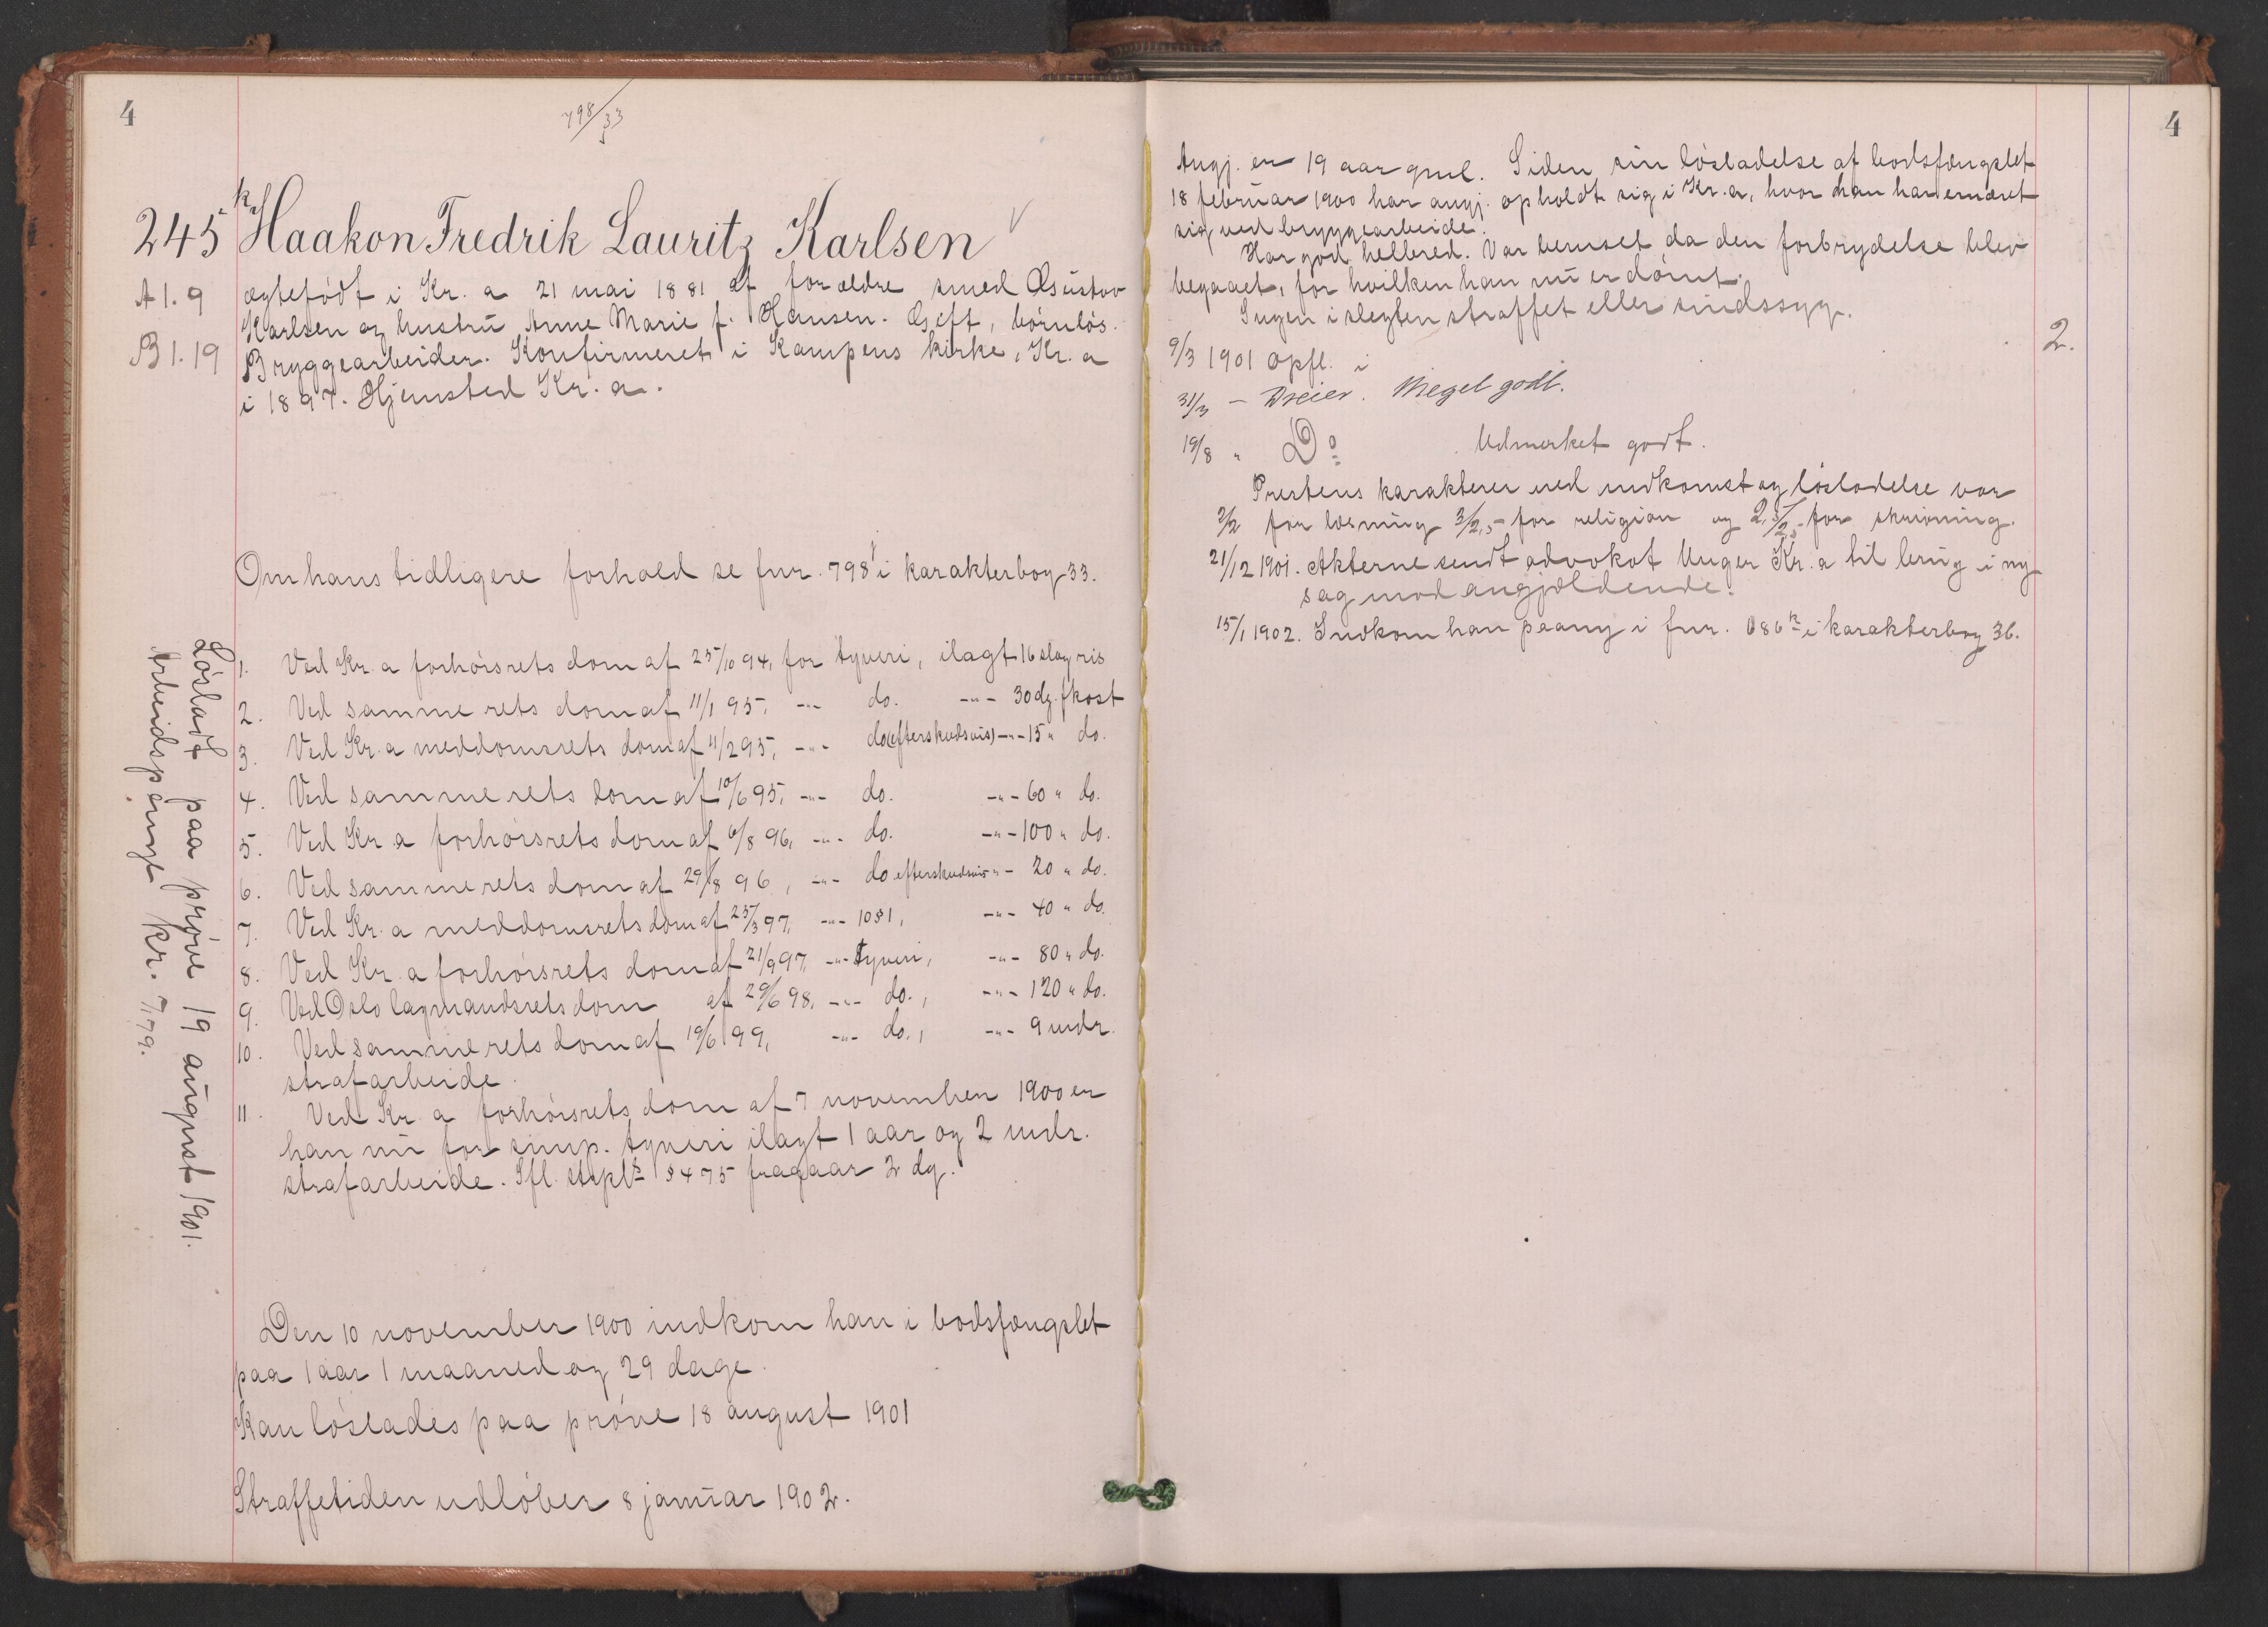 4
798/33
245 k Haakon Fredrik Lauritz Karlsen
A 1. 9
B 1. 19
ægtefødt i Kr.a 21 mai 1881 af forældre smed Gustav
Karlsen og hustru Anne Marie f. Hansen. Gift, børnløs.
Bryggearbeider. Konfirmeret i Kampens kirke, Kr.a
i 1897. Hjemsted Kr.a.
Om hans tidligere forhold se fnr. 798 i karakterbog 33.
1. Ved Kr.a forhørsrets dom af 25/10 94, for tyveri, ilagt 16 slag ris
2. Ved samme rets dom af 11/1 95, -"- do. -"- 30 dg. fkost
3. Ved Kr.a meddomsrets dom af 11/2 95, -"- do (efterskudsvis) -"- 15 " do.
4. Ved samme rets dom af 10/6 95, -"- do. -"- 60 " do.
5. Ved Kr.a forhørsrets dom af 6/8 96, -"- do. -"- 100 " do.
6. Ved samme rets dom af 29/8 96, -"- do efterskudsvis -"- 20 " do.
7. Ved Kr.a meddomsrets dom af 25/3 97, -"- 10 § 1, -"- 40 " do.
8. Ved Kr.a forhørsrets dom af 21/9 97, -"- tyveri, -"- 80 " do.
9. Ved Oslo lagmandsrets dom af 29/6 98, -"- do., -"- 120 " do.
10. Ved samme rets dom af 19/6 99, -"- do., -"- 9 mdr.
strafarbeide.
11. Ved Kr.a forhørsrets dom af 7 november 1900 er
han nu for simp. tyveri ilagt 1 aar og 2 mdr.
strafarbeide. Ifl. § 475 fragaar 2 dg.
Løsladt paa prøve 19 august 1901.
Arbeidspenge kr. 7,79.
Den 10 november 1900 indkom han i bodsfængslet
paa 1 aar 1 maaned og 29 dage.
Kan løslades paa prøve 18 august 1901
Straffetiden udløber 8 januar 1902.
4
Angj. er 19 aar gml. Siden sin løsladelse af bodsfængslet
18 februar 1900 har angj. opholdt sig i Kr.a, hvor han har ernæret
sig ved bryggearbeide.
Har god helbred. Var beruset da den forbrydelse blev
begaaet, for hvilken han nu er dømt.
Ingen i slegten straffet eller sindssyg.
9/3 1901 opfl. i 2.
31/3 - Dreier. Meget godt.
19/8 " Do Udmerket godt.
Prestens karakterer ved indkomst og løsladelse var
2/2 for læsning 3/2,5 for religion og 2,5/2,5 for skrivning.
21/12 1901. Akterne sendt advokat Unger Kr.a til brug i ny
sag mod angjældende.
15/1 1902. Indkom han paany i fnr. 086 k i karakterbog 36.